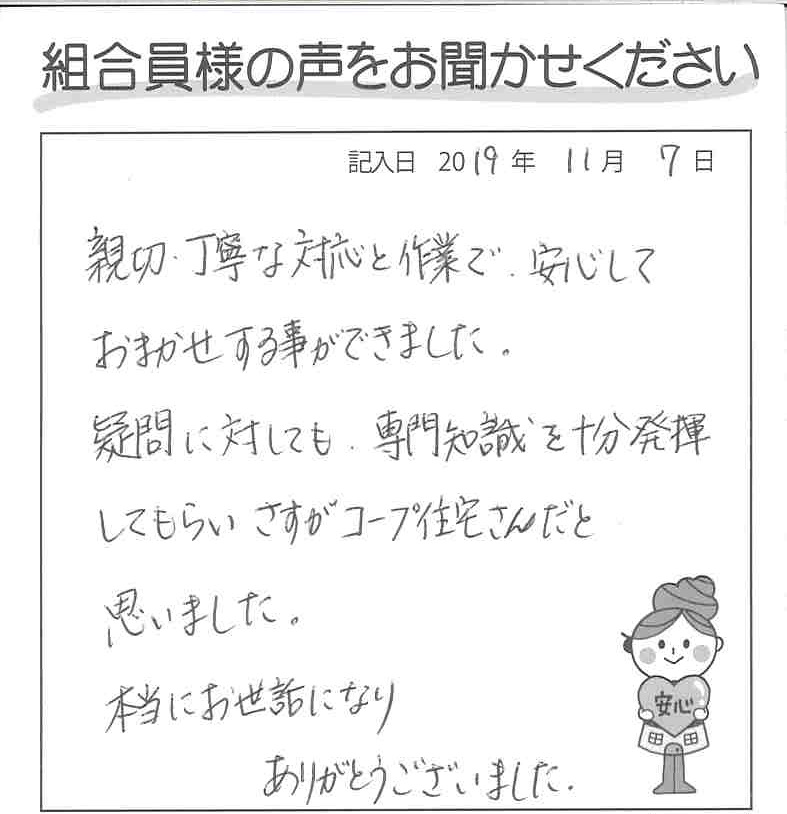 組合員様の声をお聞かせください
記入日 2019年 11月 7日
親切・丁寧な対応と作業で、安心して
おまかせする事ができました。
疑問に対しても、専門知識を十分発揮
してもらい さすがコープ住宅さんだと
思いました。
本当にお世話になり
ありがとうございました.
安心